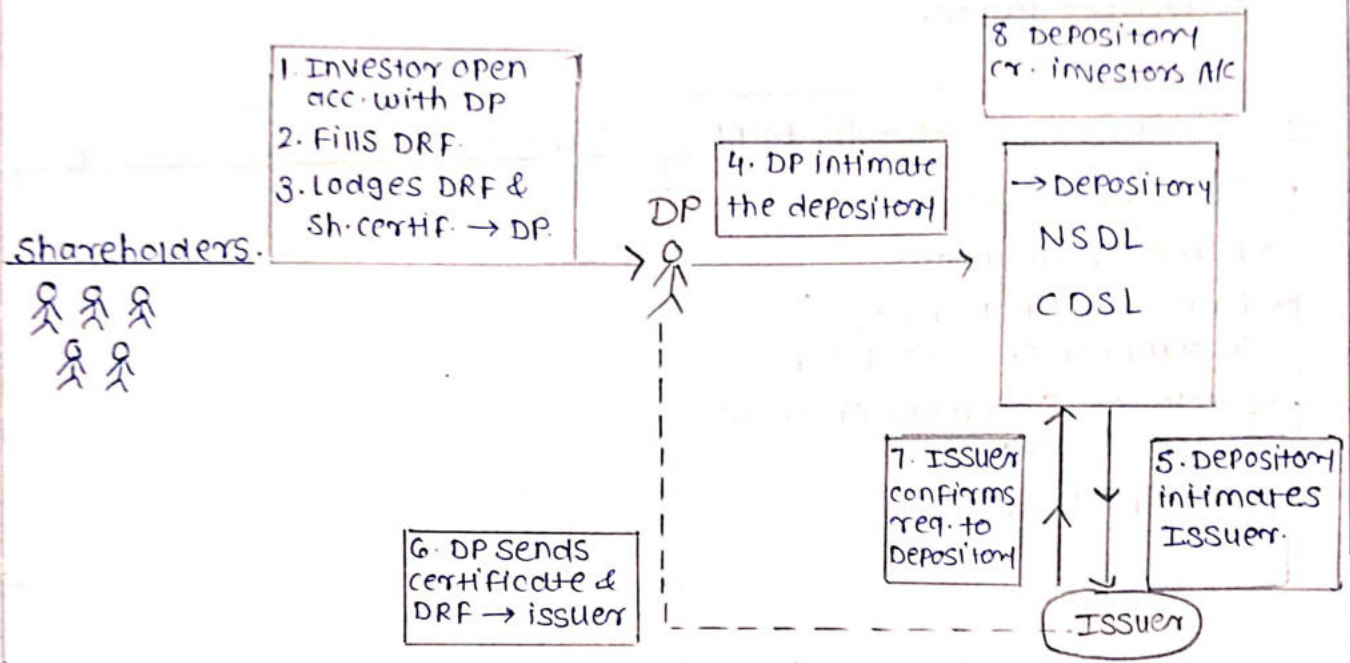 Shareholders.
1. Investor open
acc. with DP
2. Fills DRF.
3. Lodges DRF &
Sh. certif. → DP.
DP
4. DP intimate
the depository
8 Depository
cr. investors A/C
→ Depository
NSDL
CDSL
7. Issuer
confirms
req. to
Depository
5. Depository
intimates
Issuer.
6. DP sends
certificate &
DRF → issuer
Issuer